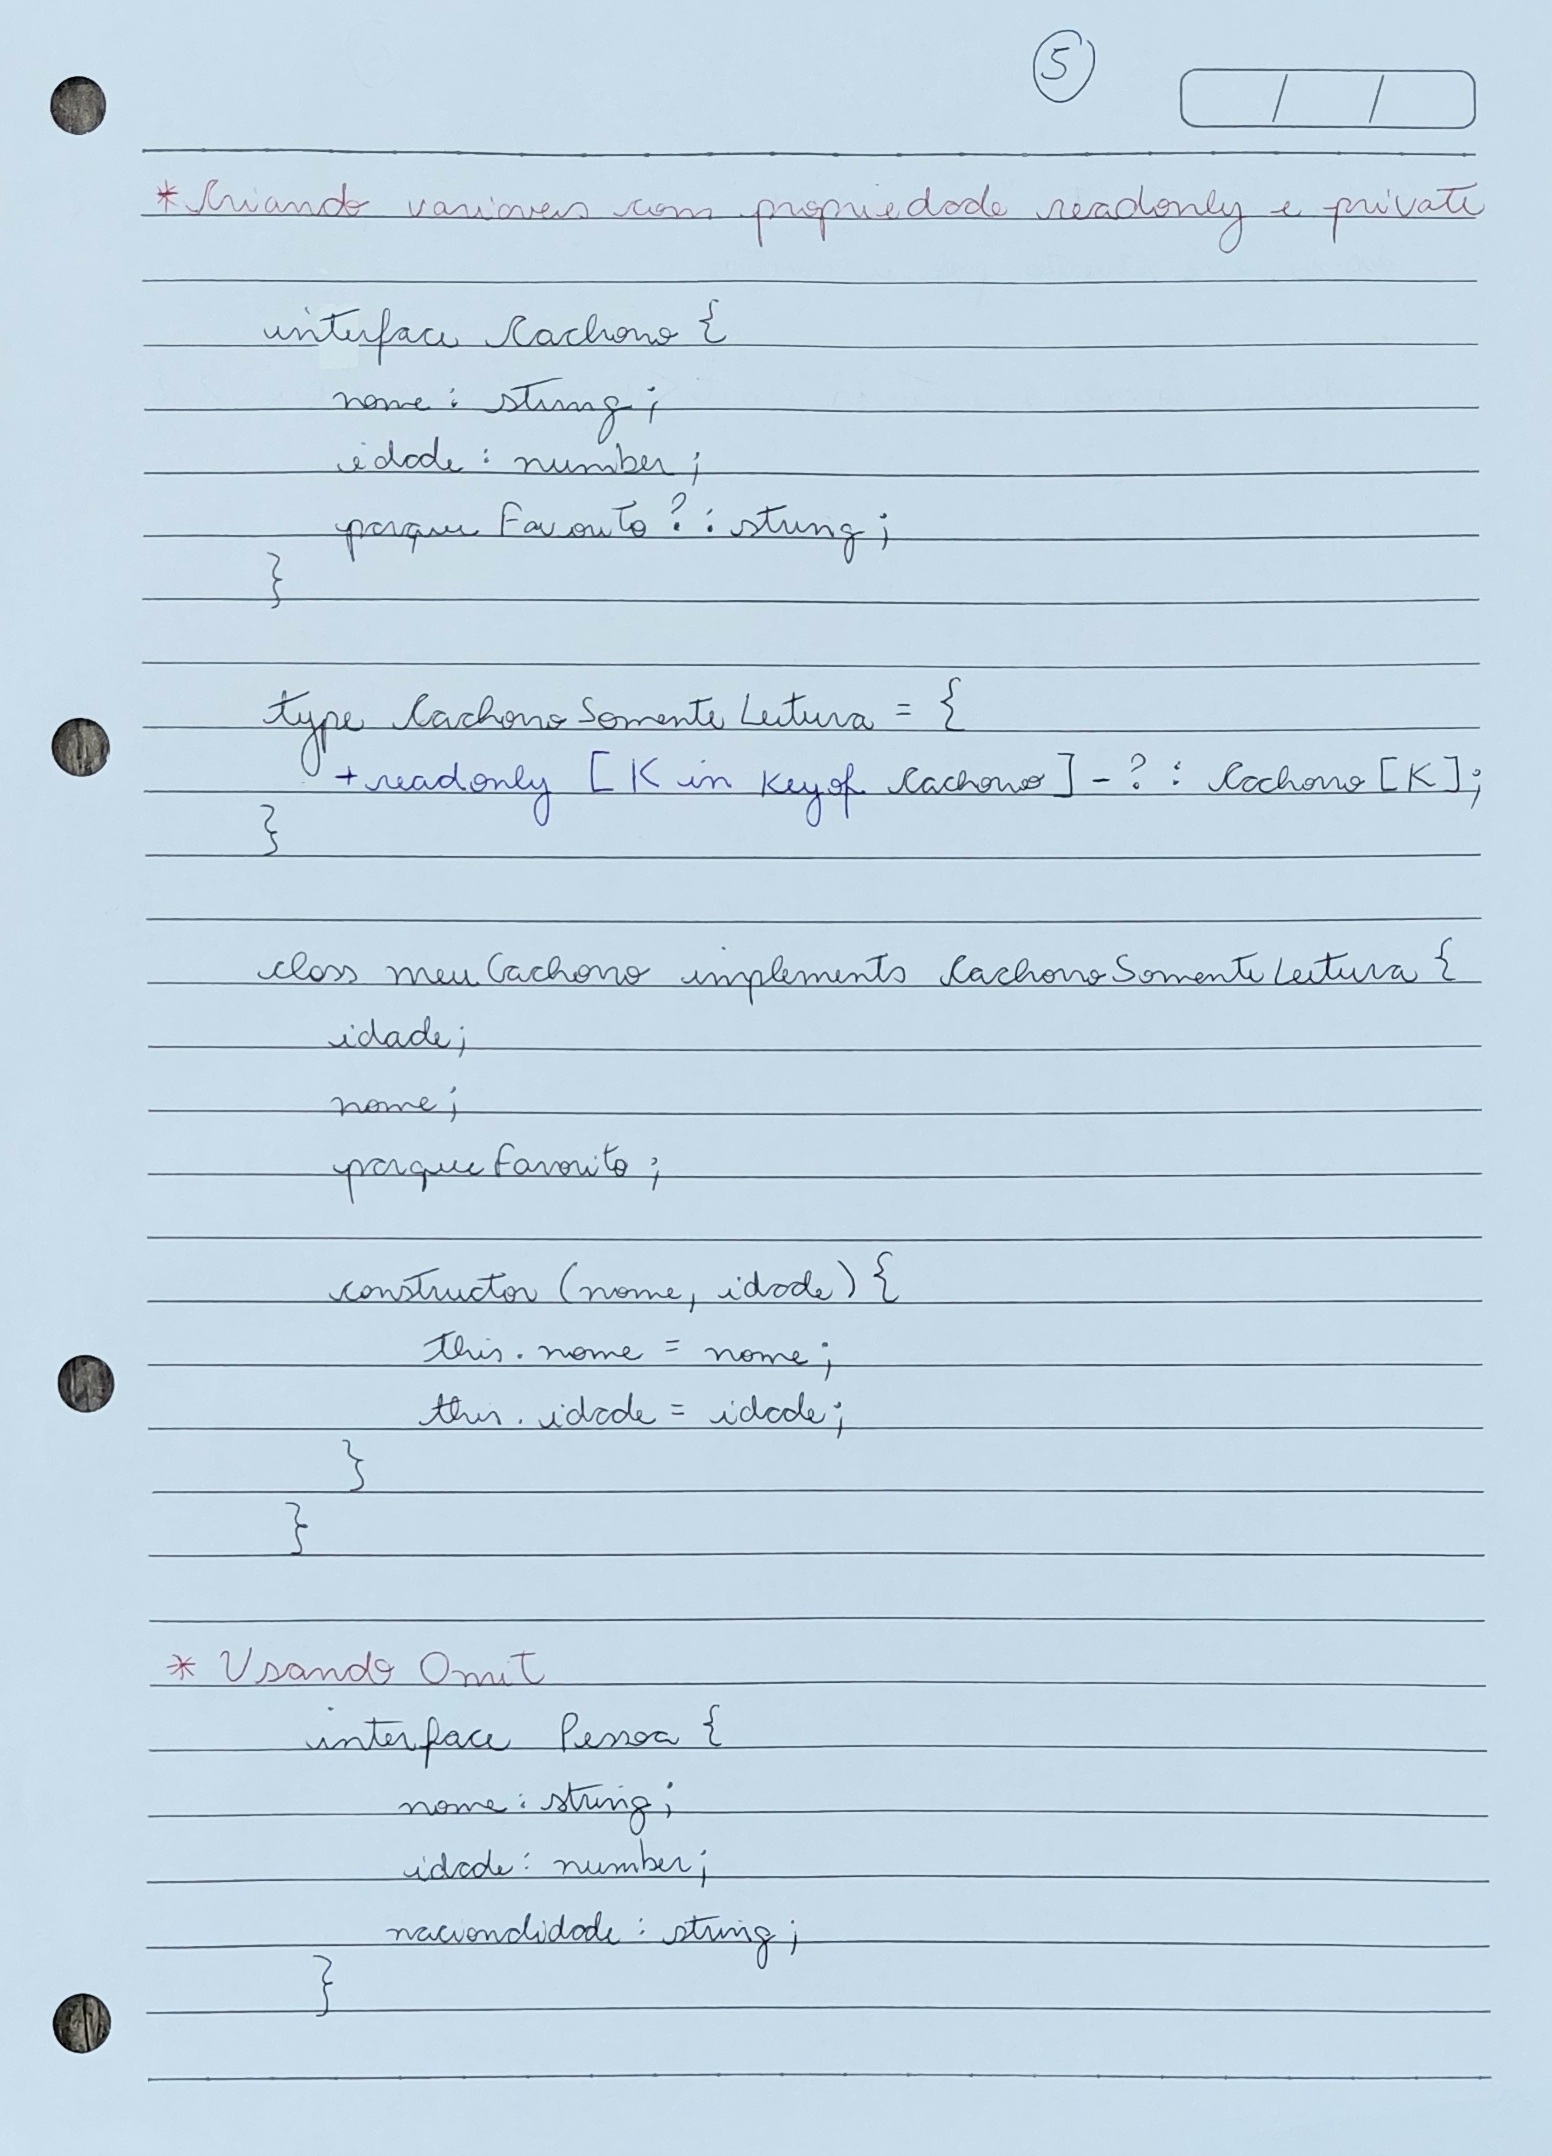 5
* Criando variaveis com propriedade readonly e private
interface Cachorro {
nome : string ;
idade : number ;
parque Favorito ? : string ;
}
type Cachorro Somente Leitura = {
+ readonly [ K in Keyof Cachorro ] - ? : Cachorro [ K ] ;
}
class meu Cachorro implements Cachorro Somente Leitura {
idade ;
nome ;
parque Favorito ;
constructor ( nome , idade ) {
this . nome = nome ;
this . idade = idade ;
}
}
* Usando Omit
interface Pessoa {
nome : string ;
idade : number ;
nacionalidade : string ;
}